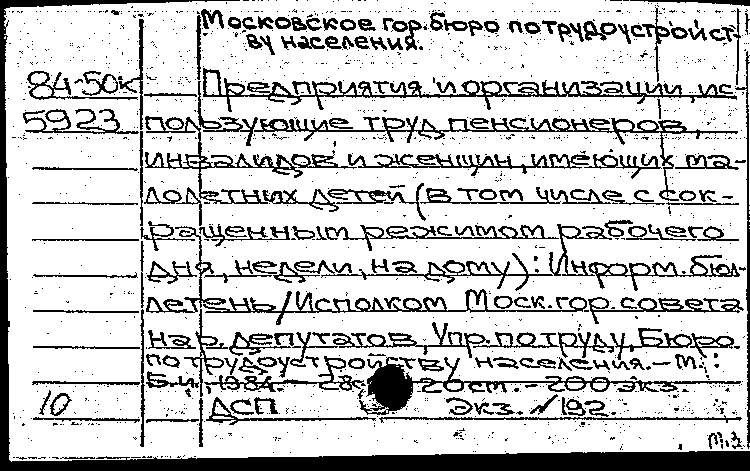 Московское гор. бюро по трудоустройст-
ву населения.
84-50к Предприятия и организации, ис-
5923 пользующие труд пенсионеров,
инвалидов и женщин, имеющих ма-
лолетних детей (в том числе с сок-
ращенным режимом рабочего
дня, недели, на дому): Информ. бюл-
летень/Исполком Моск. гор. совета
нар. депутатов, Упр. по труду, Бюро
по трудоустройству населения. — М.:
Б.и., 1984. — 28с 20 см. — 200 экз.
10 ДСП Экз. № 192.